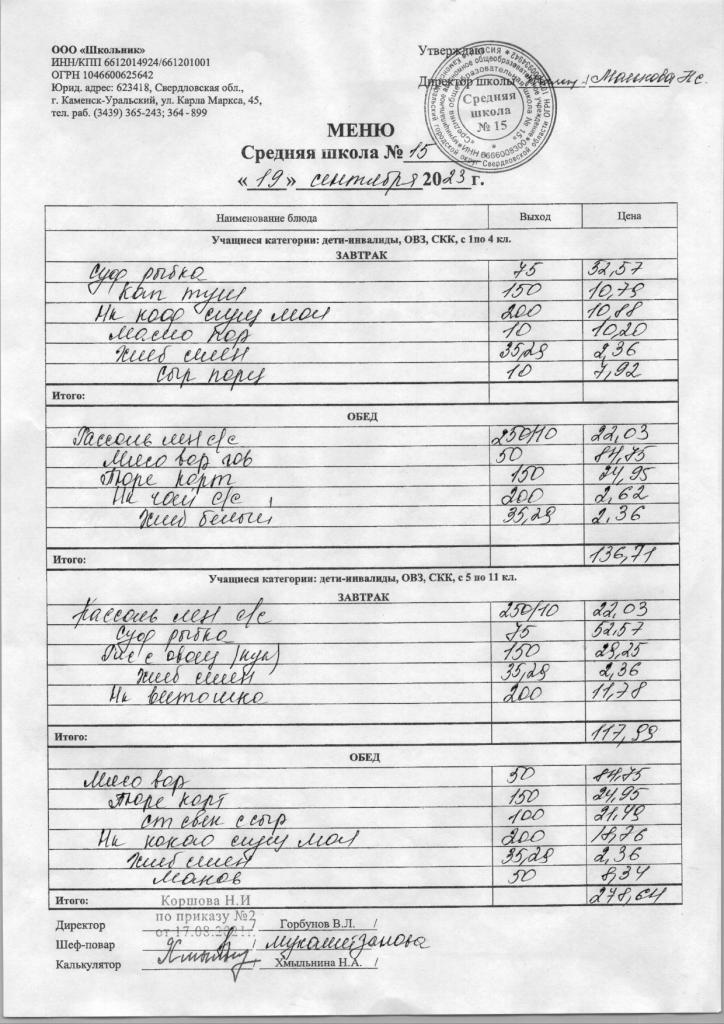 ООО «Школьник»
ИНН/КПП 6612014924/661201001
ОГРН 1046600625642
Юрид. адрес: 623418, Свердловская обл.,
г. Каменск-Уральский, ул. Карла Маркса, 45,
тел. раб. (3439) 365-243; 364 - 899
Утверждаю
Директор школы
Средняя школа № 15
МЕНЮ
Средняя школа № 15
« 19 » сентября 2023 г.
Наименование блюда Выход Цена
Учащиеся категории: дети-инвалиды, ОВЗ, СКК, с 1по 4 кл.
ЗАВТРАК
Суф рыбка 75 52,57
Кап туш 150 10,79
Нк кофе сгущ мол 200 10,88
Масло пор 10 10,20
Хлеб смен 35,29 2,36
Сыр порц 10 7,92
Итого:
ОБЕД
Рассоль лен с/с 250/10 22,03
Мясо вар гов 50 84,75
Пюре карт 150 24,95
Нк чай с/с 200 2,62
Хлеб белый 35,29 2,36
Итого: 136,71
Учащиеся категории: дети-инвалиды, ОВЗ, СКК, с 5 по 11 кл.
ЗАВТРАК
Рассоль лен с/с 250/10 22,03
Суф рыбка 75 52,57
Рис с овощ (кук) 150 29,25
Хлеб смен 35,29 2,36
Нк витошка 200 11,78
Итого: 117,99
ОБЕД
Мясо вар 50 84,75
Пюре карт 150 24,95
ст свек с сыр 100 21,49
Нк какао сгущ мол 200 18,76
Хлеб смен 35,29 2,36
Манов 50 8,34
Итого: 278,64
Коршова Н.И
по приказу №2
от 17.08.2021г.
Директор / Горбунов В.Л. /
Шеф-повар / Мухаметзанова
Калькулятор / Хмыльнина Н.А. /